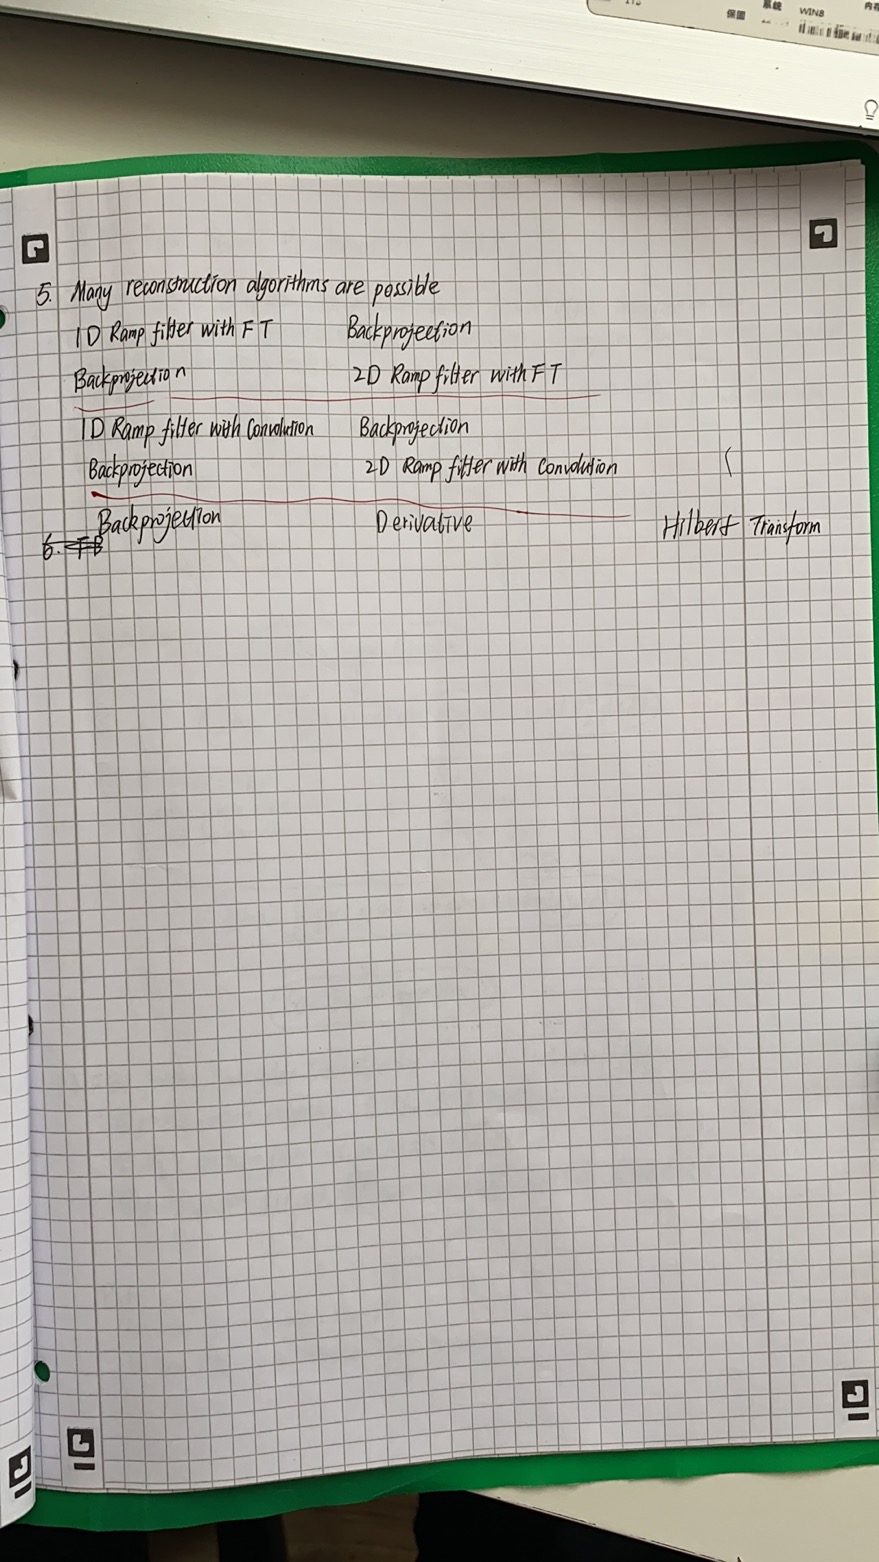 保固 系統 WIN8
5. Many reconstruction algorithms are possible
1D Ramp filter with FT Backprojection
Backprojection 2D Ramp filter with FT
1D Ramp filter with Convolution Backprojection
Backprojection 2D Ramp filter with Convolution
Backprojection Derivative Hilbert Transform
6.